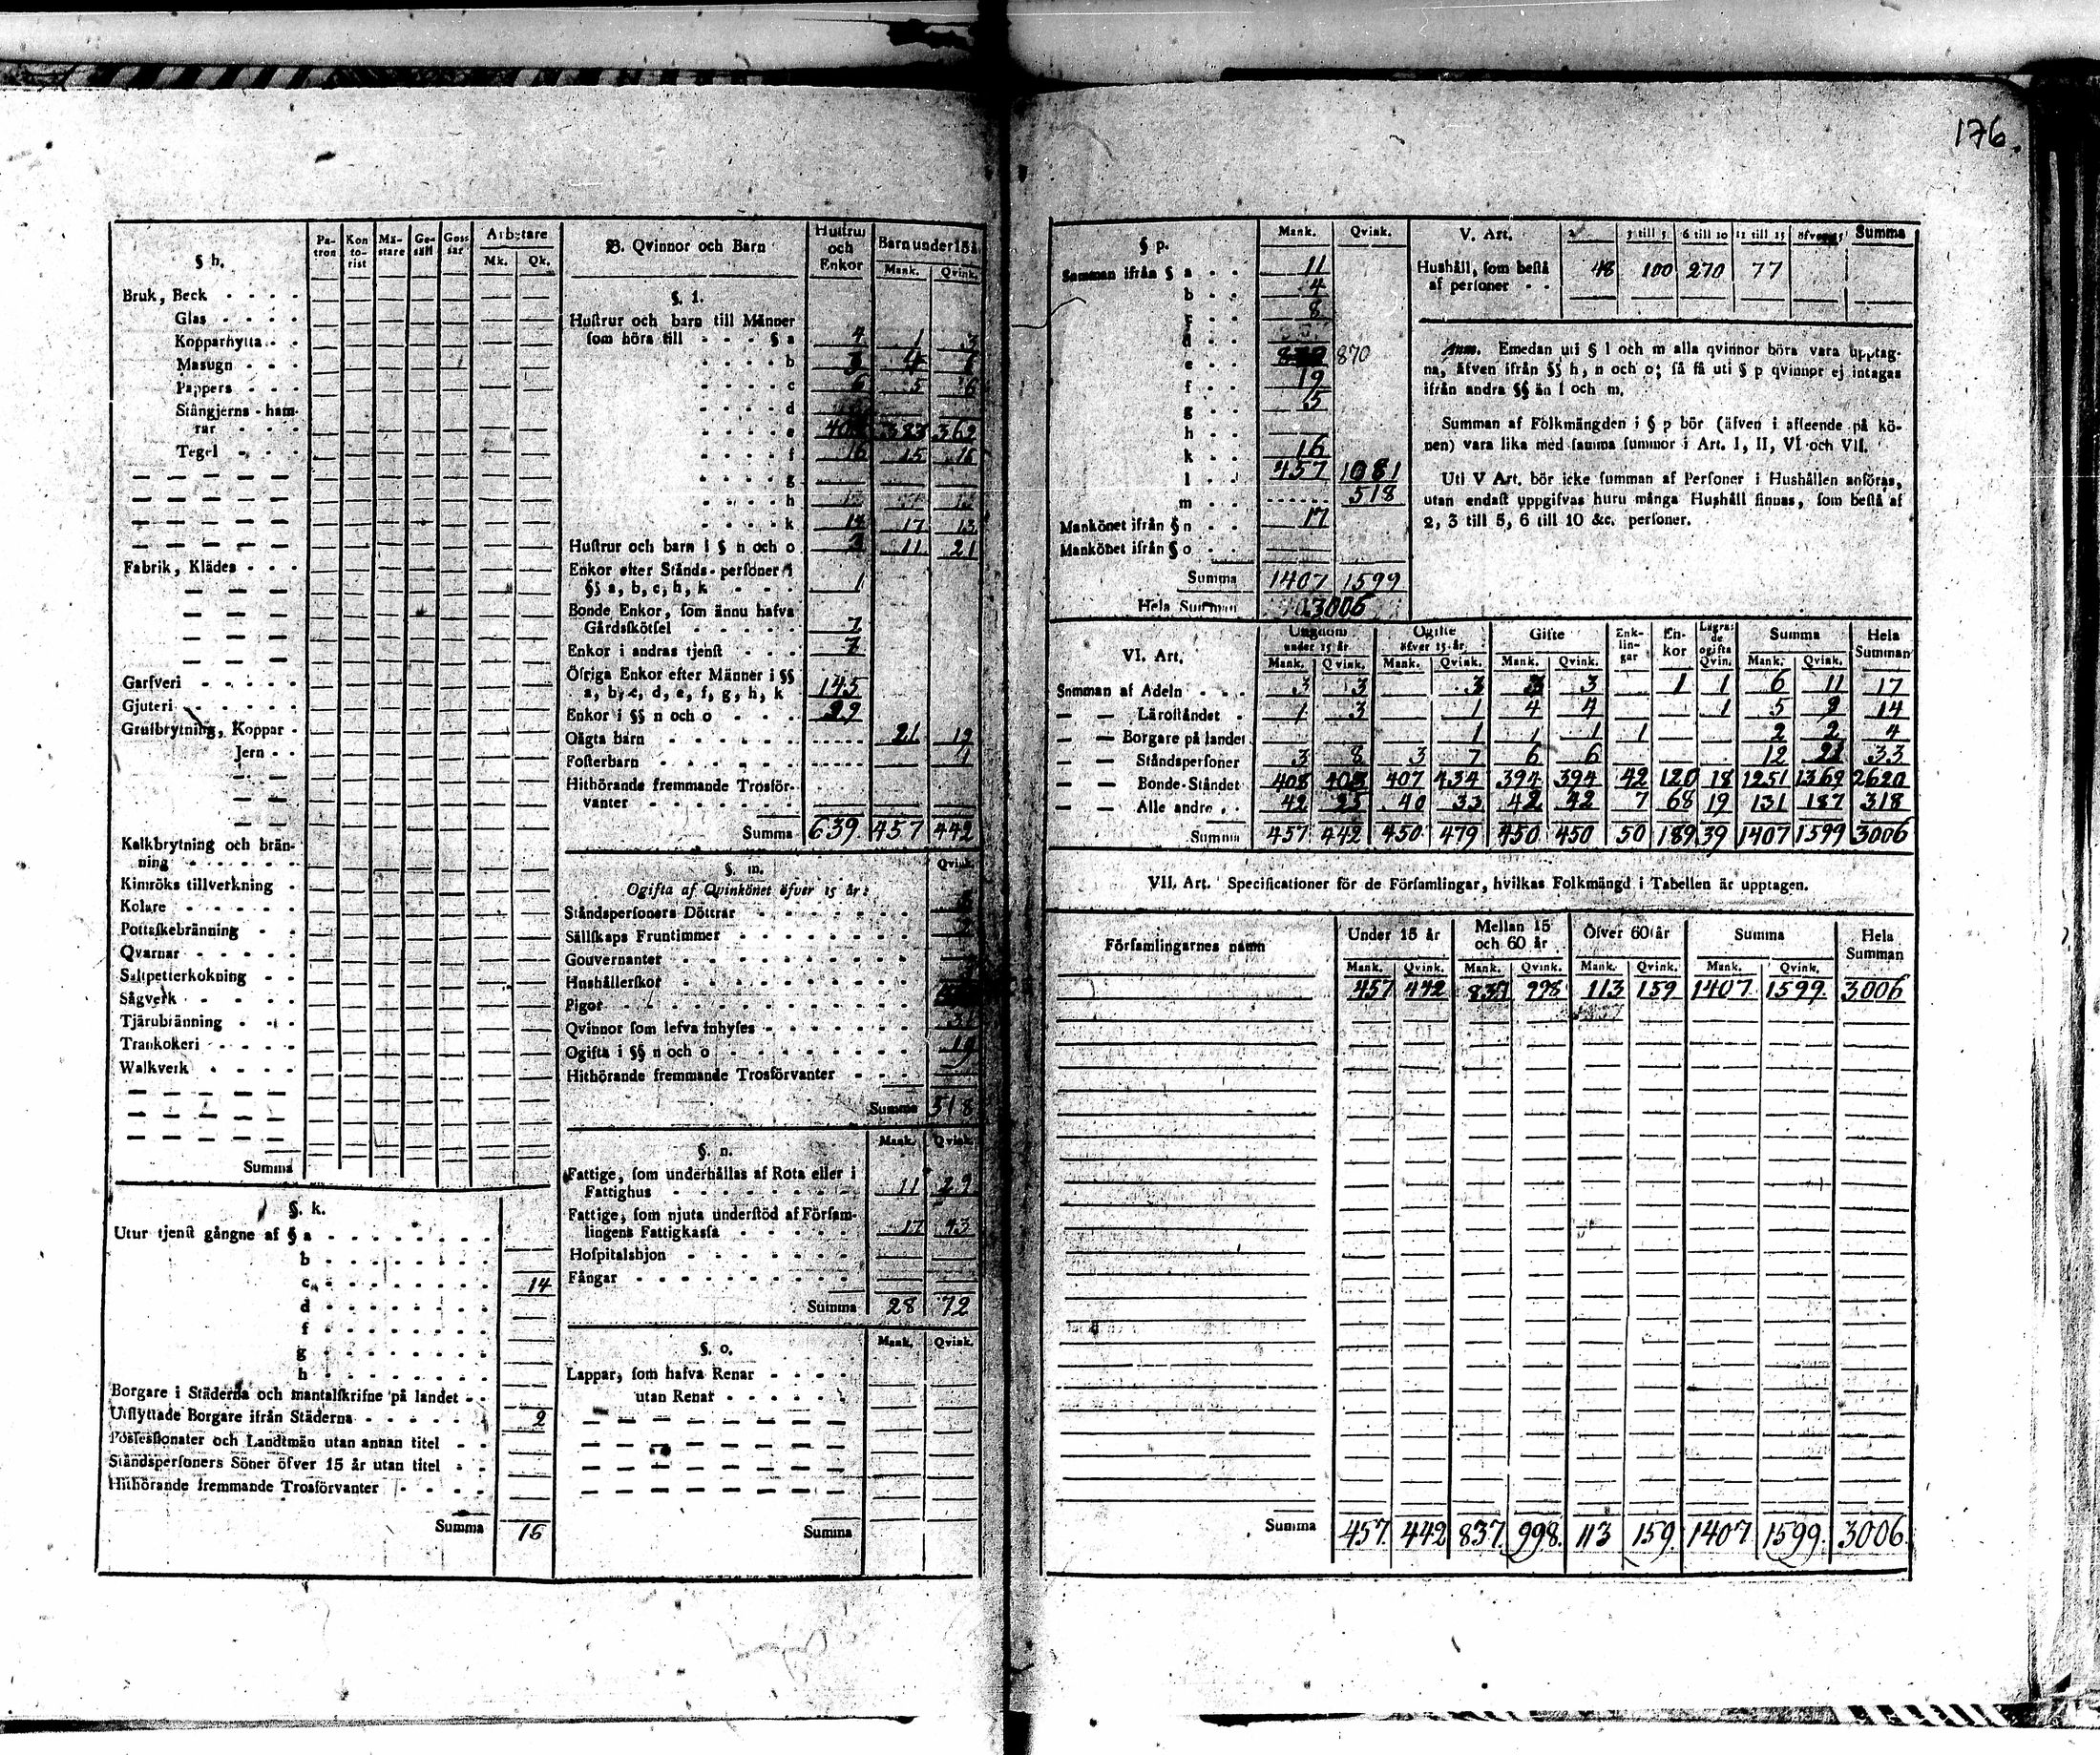 176.
§ h.
Patron Kontorist Mästare Gesäll Gossar Arbetare
Mk. Qk.
Bruk, Beck
Glas
Kopparhytta
Masugn
Pappers
Stångjerns-hamrar
Tegel
Fabrik, Klädes
Garfveri
Gjuteri
Grufbrytning, Koppar
Jern
Kalkbrytning och bränning
Kimröks tillverkning
Kolare
Pottaskebränning
Qvarnar
Saltpetterkokning
Sågverk
Tjärubränning
Trankokeri
Walkverk
Summa
§. k.
Utur tjenst gångne af § a
b
c 14
d
f
g
h
Borgare i Städerna och mantalskrifne på landet
Utflyttade Borgare ifrån Städerna 2
Possessionater och Landtmän utan annan titel
Ståndspersoners Söner öfver 15 år utan titel
Hithörande fremmande Trosförvanter
Summa 16
B. Qvinnor och Barn
Hustrur och Enkor
Barn under 15 å.
Mank. Qvink.
§. l.
Hustrur och barn till Männer
som höra till § a 4 1 3
b 3 4
c 6 5 6
d
e 383 369
f 16 15 16
g
h
k 14 17 13
Hustrur och barn i § n och o 3 11 21
Enkor efter Stånds-personer i
§§ a, b, c, h, k 1
Bonde Enkor, som ännu hafva
Gårdskötsel 7
Enkor i andras tjenst 7
Öfriga Enkor efter Männer i §§
a, b, c, d, e, f, g, h, k 145
Enkor i §§ n och o 29
Oägta barn 21 12
Fosterbarn 4
Hithörande fremmande Trosförvanter
Summa 639 457 442
§. m. Qvink.
Ogifta af Qvinkönet öfver 15 år:
Ståndspersoners Döttrar
Sällskaps Fruntimmer
Gouvernanter
Hushållerskor
Pigor
Qvinnor som lefva inhyses 31
Ogifta i §§ n och o 19
Hithörande fremmande Trosförvanter
Summa 518
§. n. Mank. Qvink.
Fattige, som underhållas af Rota eller i
Fattighus 11 29
Fattige, som njuta understöd af Församlingens Fattigkassa 17 43
Hospitalshjon
Fångar
Summa 28 72
§. o. Mank. Qvink.
Lappar, som hafva Renar
utan Renar
Summa
§ p. Mank. Qvink.
Summan ifrån § a 11
b 4
c 8
d
e 870
f 19
g 5
h
k 16
l 457 1081
m 518
Mankönet ifrån § n 17
Mankönet ifrån § o
Summa 1407 1599
Hela Summan 3006
V. Art. 2 3 till 5 6 till 10 11 till 15 öfver 15 Summa
Hushåll, som bestå
af personer 48 100 270 77
Anm. Emedan uti § l och m alla qvinnor böra vara upptagna, äfven ifrån §§ h, n och o; så få uti § p qvinnor ej intagas
ifrån andra §§ än l och m.
Summan af Folkmängden i § p bör (äfven i afseende på könen) vara lika med samma summor i Art. I, II, VI och VII.
Uti V Art. bör icke summan af Personer i Hushållen anföras,
utan endast uppgifvas huru många Hushåll finnas, som bestå af
2, 3 till 5, 6 till 10 &c. personer.
VI. Art.
Ungdom under 15 år Ogifte öfver 15 år Gifte Enklingar Enkor Lägrade ogifta Qvin. Summa Hela Summan
Mank. Qvink. Mank. Qvink. Mank. Qvink. Mank. Qvink.
Summan af Adeln 3 3 3 3 3 1 1 6 11 17
Läroståndet 1 3 1 4 4 1 5 9 14
Borgare på landet 1 1 1 1 2 2 4
Ståndspersoner 3 8 3 7 6 6 12 21 33
Bonde-Ståndet 408 403 407 434 394 394 42 120 18 1251 1369 2620
Alle andre 42 25 40 33 42 42 7 68 19 131 187 318
Summa 457 442 450 479 450 450 50 189 39 1407 1599 3006
VII. Art. Specificationer för de Församlingar, hvilkas Folkmängd i Tabellen är upptagen.
Församlingarnes namn
Under 15 år Mellan 15 och 60 år Öfver 60 år Summa Hela Summan
Mank. Qvink. Mank. Qvink. Mank. Qvink. Mank. Qvink.
457 442 837 998 113 159 1407 1599 3006
Summa 457. 442 837. 998. 113 159. 1407 1599. 3006.